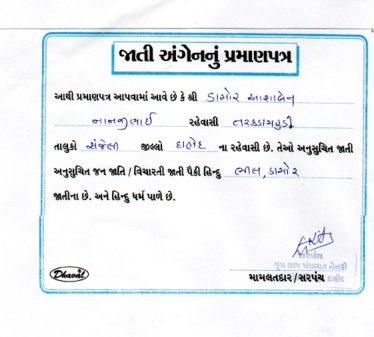 જાતી અંગેનનું પ્રમાણપત્ર
આથી પ્રમાણપત્ર આપવામાં આવે છે કે શ્રી ડામોર આશાબેન
નાનજીભાઈ રહેવાસી તરકડામહુડી
તાલુકો સંજેલી જીલ્લો દાહોદ ના રહેવાસી છે. તેઓ અનુસુચિત જાતી
અનુસુચિત જન જાતિ / વિચારતી જાતી પૈકી હિન્દુ ભીલ, ડામોર
જાતીના છે. અને હિન્દુ ધર્મ પાળે છે.
સરપંચ
ગૃપ ગ્રામ પંચાયત
મામલતદાર/સરપંચ દાહોદ
Dhaval